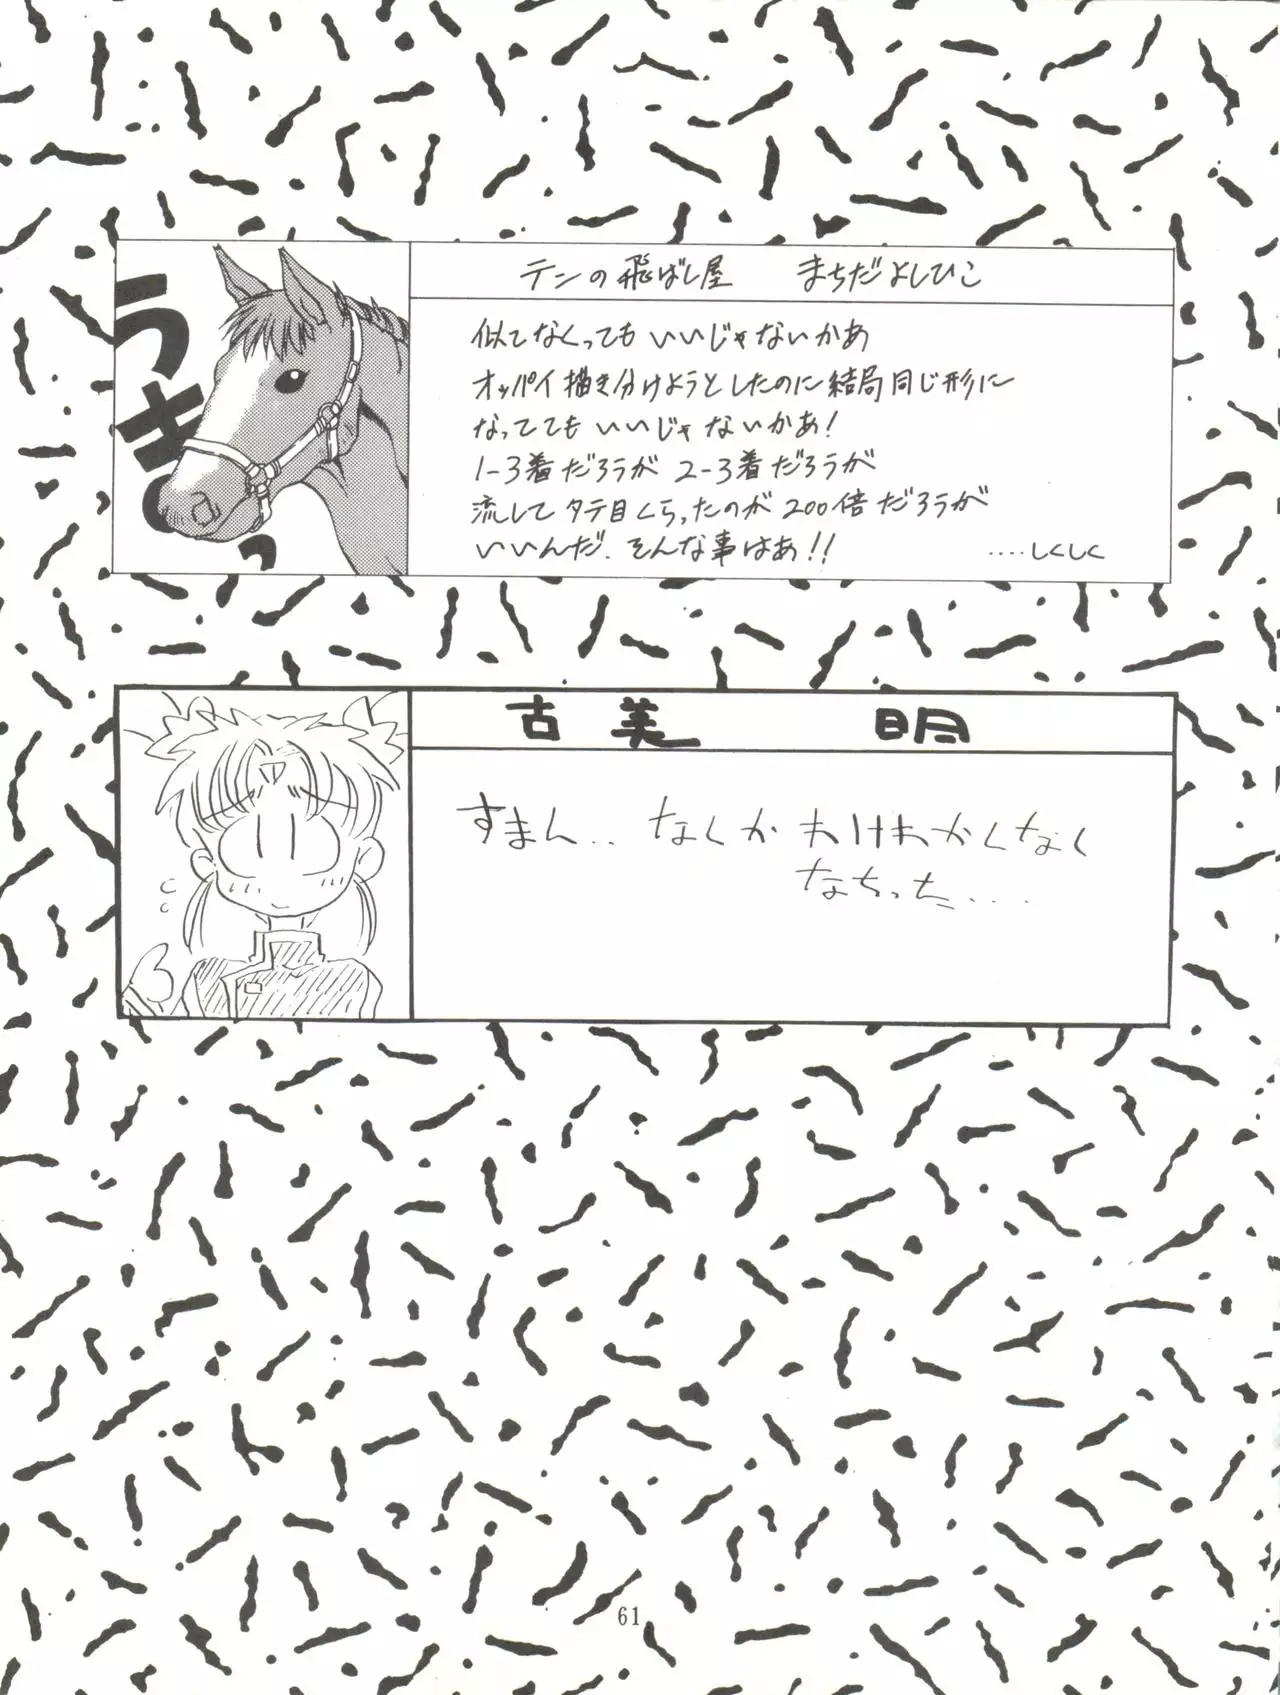 うきっ
テンの飛ばし屋　まちだよしひこ
似てなくってもいいじゃないかあ
オッパイ描き分けようとしたのに結局同じ形に
なっててもいいじゃないかあ!
1-3着だろうが2-3着だろうが
流してタテ目くらったのが200倍だろうが
いいんだ、そんな事はあ!!　....しくしく
古美　明
すまん... なくかわけわかくなく
なちった....
61